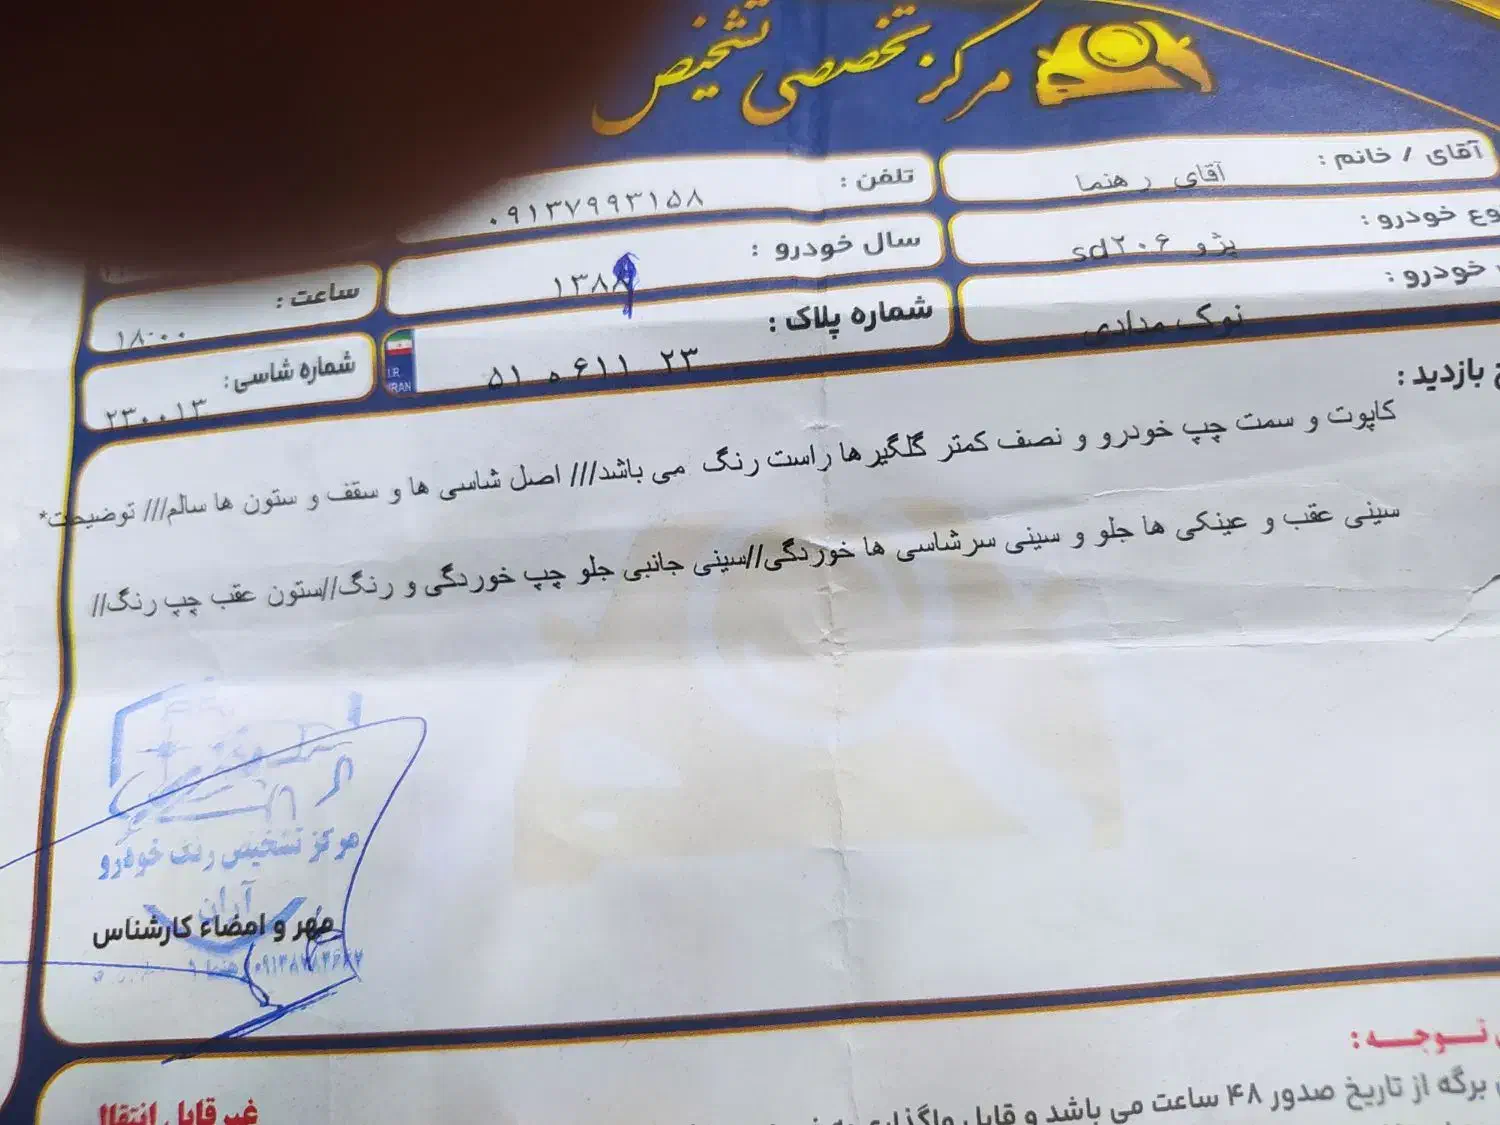 مرکز تخصصی تشخیص
آقای / خانم : آقای رهنما
تلفن : ۰۹۱۳۷۹۹۳۱۵۸
خودرو : پژو sd۲۰۶
سال خودرو : ۱۳۸
ساعت : ۱۸:۰۰
خودرو : نوک مدادی
شماره پلاک : ۲۳ ۶۱۱ ه ۵۱
I.R. IRAN
شماره شاسی : ۲۳۰۰۱۳
بازدید :
کاپوت و سمت چپ خودرو و نصف کمتر گلگیرها راست رنگ می باشد/// اصل شاسی ها و سقف و ستون ها سالم/// توضیحت*
سینی عقب و عینکی ها جلو و سینی سرشاسی ها خوردگی//سینی جانبی جلو چپ خوردگی و رنگ//ستون عقب چپ رنگ//
مرکز تشخیص رنگ خودرو
آران
مهر و امضاء کارشناس
توجه :
برگه از تاریخ صدور ۴۸ ساعت می باشد و قابل واگذاری به
غیر قابل انتقال